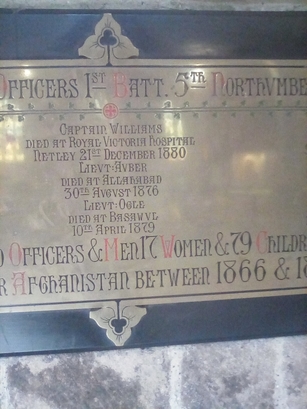 Officers 1st Batt. 5th Northumbe
Captain Williams
died at Royal Victoria Hospital
Netley 21st December 1880
Lieut. Auber
died at Allahabad
30th August 1876
Lieut. Ogle
died at Basawul
10th April 1879
Officers & Men 17 Women & 79 Childr
Afghanistan between 1866 & 18